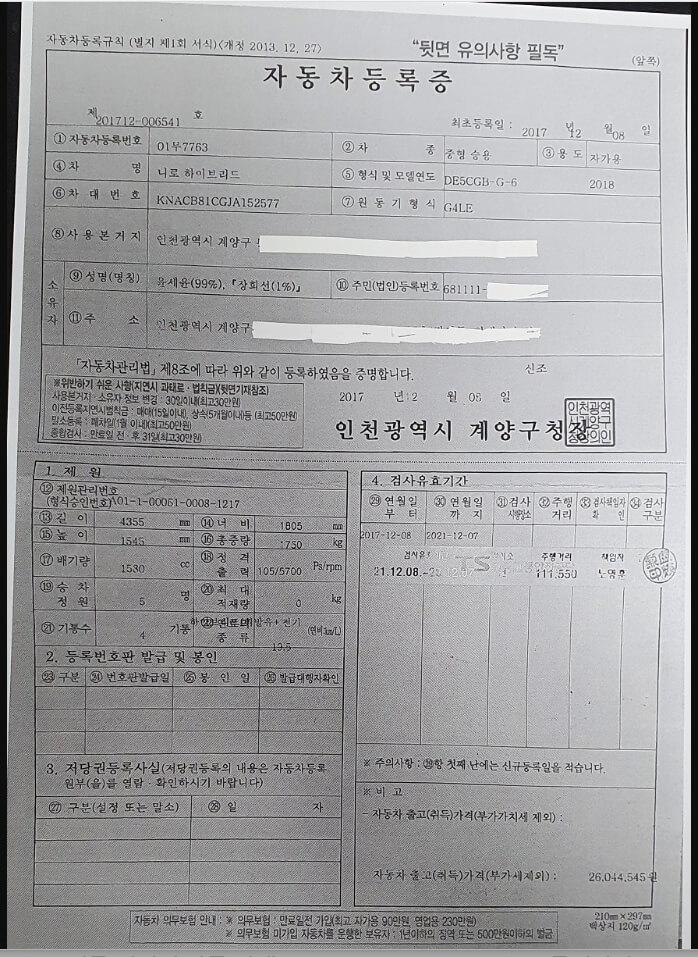 자동차등록규칙 (별지 제1회 서식)<개정 2013. 12. 27>
"뒷면 유의사항 필독"
(앞쪽)
자동차등록증
제 201712-006541 호
최초등록일 : 2017 년 12 월 08 일
① 자동차등록번호 01무7763 ② 차 종 중형 승용 ③ 용 도 자가용
④ 차 명 니로 하이브리드 ⑤ 형식 및 모델연도 DE5CGB-G-6 2018
⑥ 차 대 번 호 KNACB81CGJA152577 ⑦ 원 동 기 형 식 G4LE
⑧ 사 용 본 거 지 인천광역시 계양구
소유자
⑨ 성명(명칭) 윤세윤(99%), 『장희선(1%)』 ⑩ 주민(법인)등록번호 681111-
⑪ 주 소 인천광역시 계양구
「자동차관리법」 제8조에 따라 위와 같이 등록하였음을 증명합니다.
신조
※위반하기 쉬운 사항(지연시 과태료·범칙금)(뒷면기재참조)
사용본거지 · 소유자 정보 변경 : 30일이내(최고30만원)
이전등록지연시범칙금 : 매매(15일이내), 상속(5개월이내)등 (최고50만원)
말소등록 : 폐차일(1월 이내)(최고50만원)
종합검사 : 만료일 전 · 후 31일(최고30만원)
2017 년 12 월 08 일
인천광역시 계양구청장
인천광역
시계양구
청장의인
1. 제 원
⑫ 제원관리번호
(형식승인번호) A01-1-00051-0008-1217
⑬ 길 이 4355 mm ⑭ 너 비 1805 mm
⑮ 높 이 1545 mm ⑯ 총중량 1750 kg
⑰ 배기량 1580 cc ⑱ 정 격 출 력 105/5700 Ps/rpm
⑲ 승 차 정 원 5 명 ⑳ 최 대 적재량 0 kg
㉑ 기통수 4 기통 종 류 (연비km/L)
19.5
2. 등록번호판 발급 및 봉인
㉓ 구분 ㉔ 번호판발급일 ㉕ 봉 인 일 ㉖ 발급대행자확인
3. 저당권등록사실(저당권등록의 내용은 자동차등록
원부(을)를 열람 · 확인하시기 바랍니다)
㉗ 구분(설정 또는 말소) ㉘ 일 자
4. 검사유효기간
㉙ 연월일 부터 ㉚ 연월일 까지 ㉛ 검사 시행장소 ㉜ 주행 거리 ㉝ 검사책임자 확 인 ㉞ 검사 구분
2017-12-08 2021-12-07
주행거리 책임자
21.12.08.- TS 111,550
※ 주의사항 : ㉙항 첫째 난에는 신규등록일을 적습니다.
※ 비 고
- 자동차 출고(취득)가격(부가가치세 제외) :
자동차 출고(취득)가격(부가세제외) : 26,044,545원
자동차 의무보험 안내 : ※ 의무보험 : 만료일전 가입(최고 자가용 90만원, 영업용 230만원)
※ 의무보험 미가입 자동차를 운행한 보유자 : 1년이하의 징역 또는 500만원이하의 벌금
210㎜×297㎜
백상지 120g/㎡